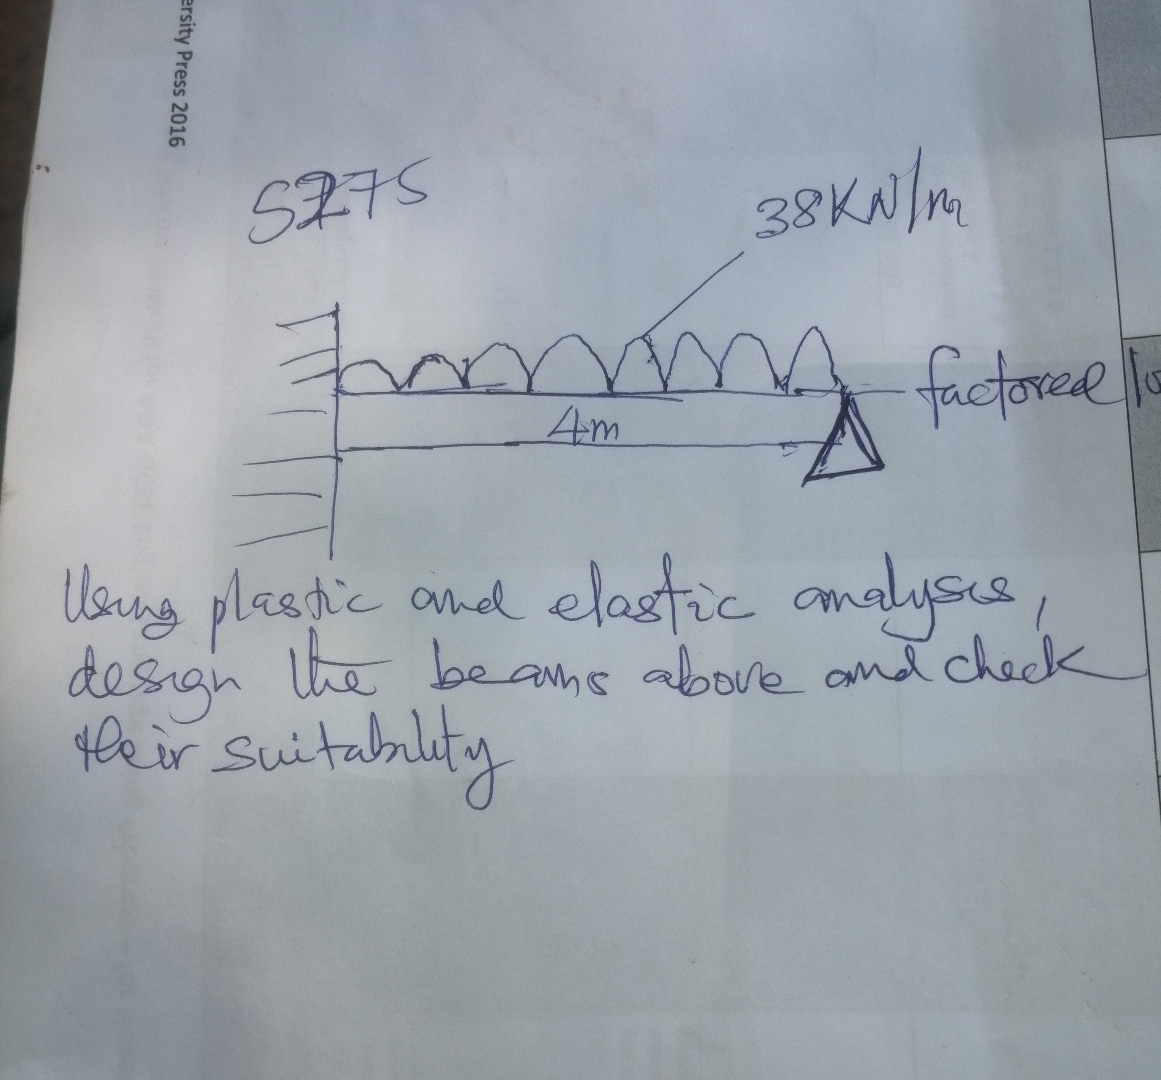 ersity Press 2016
S275
38KN/m
factored
4m
Using plastic and elastic analysis,
design the beams above and check
their suitability